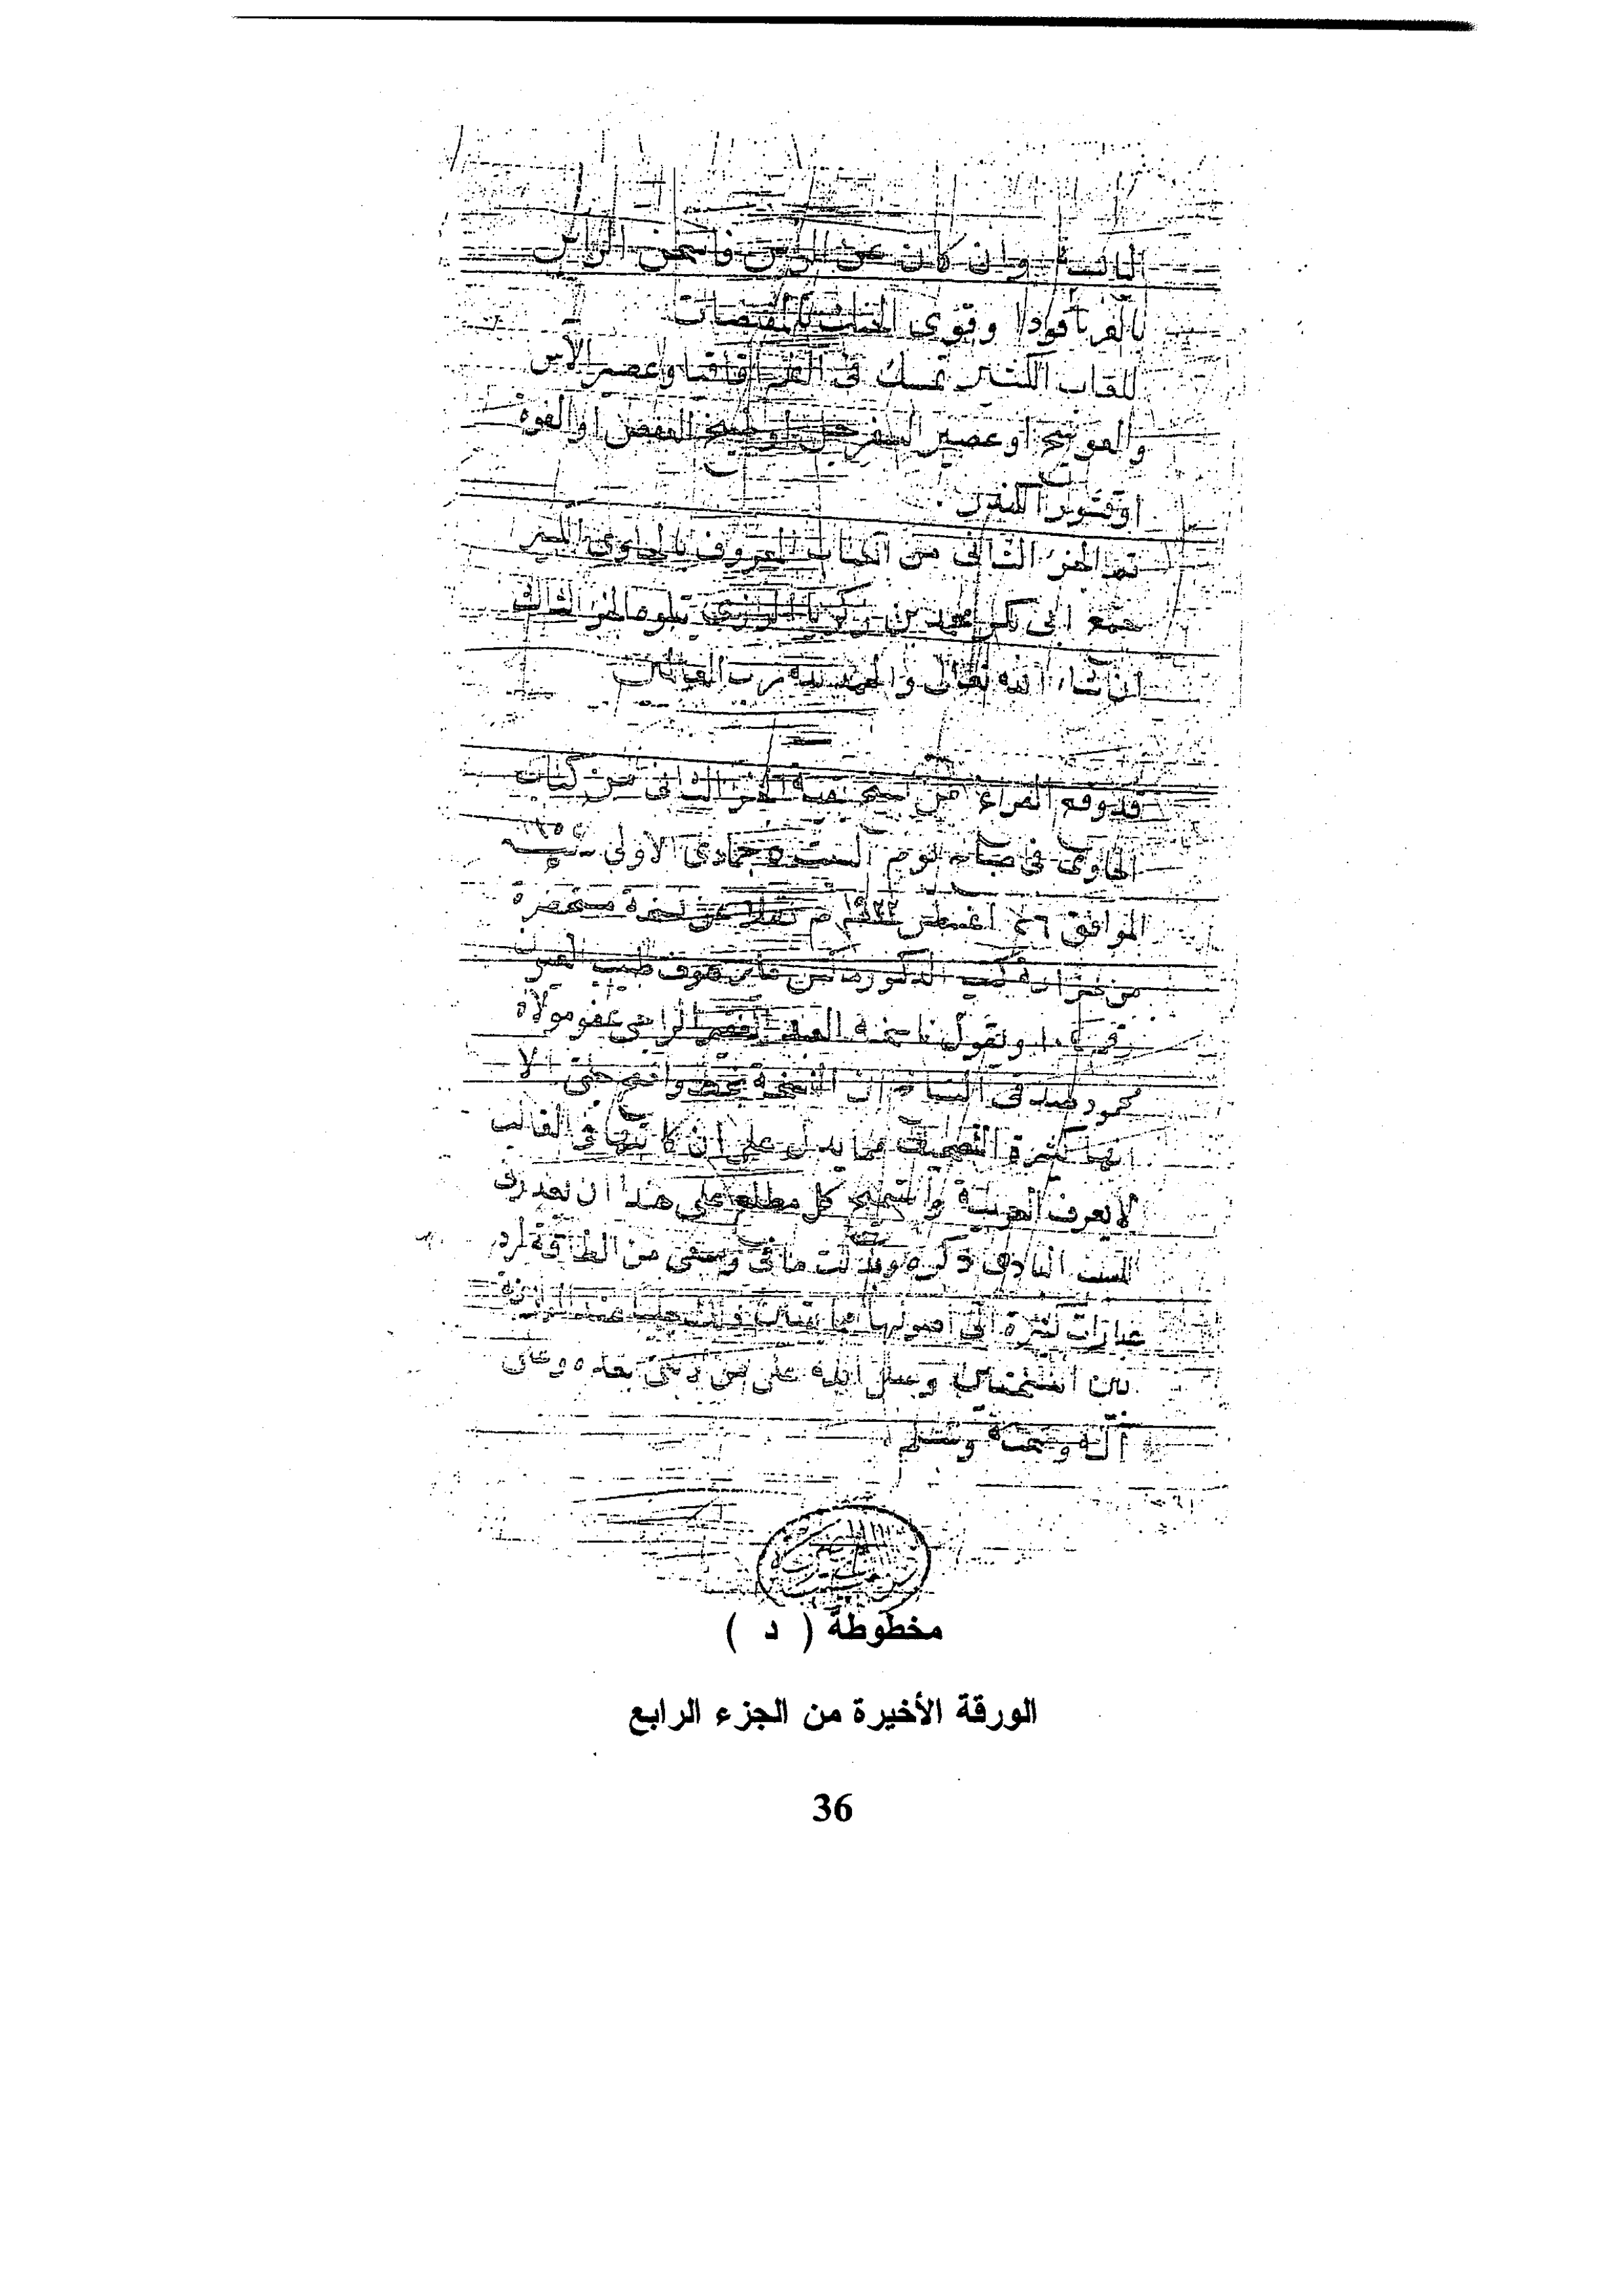 اليابسة وان كان عن الراس فاسخن الراس
وقوى الحنك بالمقبضات
للعاب الكثير تمسك فى الفم اقاقيا وعصير الآس
والعوسج او عصير السفرجل او طبيخ العفص او الفوة
او قشور الكندر
تم الجزء الثانى من الكتاب المعروف بالحاوى الكبير
جمع ابى بكر محمد بن زكريا الرازى يتلوه الجزء الثالث
ان شاء الله تعالى والحمد لله رب العالمين
قد وقع الفراغ من نسخ بقية الجزء الثانى من كتاب
الحاوى فى صباح يوم السبت جمادى الاولى سنة
الموافق اغسطس م نقلا عن نسخة مستحضرة
من خزانة كتب الدكتور ماكس مايرهوف طبيب العيون
ويقول ناسخه العبد الفقير الراجى عفو مولاه
محمود صدقى النساخ ان النسخة بخط واضح جلى الا
انها كثيرة التصحيف مما يدل على ان كاتبها فى الغالب
لا يعرف العربية كل مطلع على هذا ان يعذرنى
للسبب البادى ذكره وبذلت ما فى وسعى من الطاقة لرد
عبارات كثيرة الى اصولها
بين النسختين وصل الله على من لا نبى بعده وعلى
آله وصحبه وسلم
مخطوطة ( د )
الورقة الأخيرة من الجزء الرابع
36